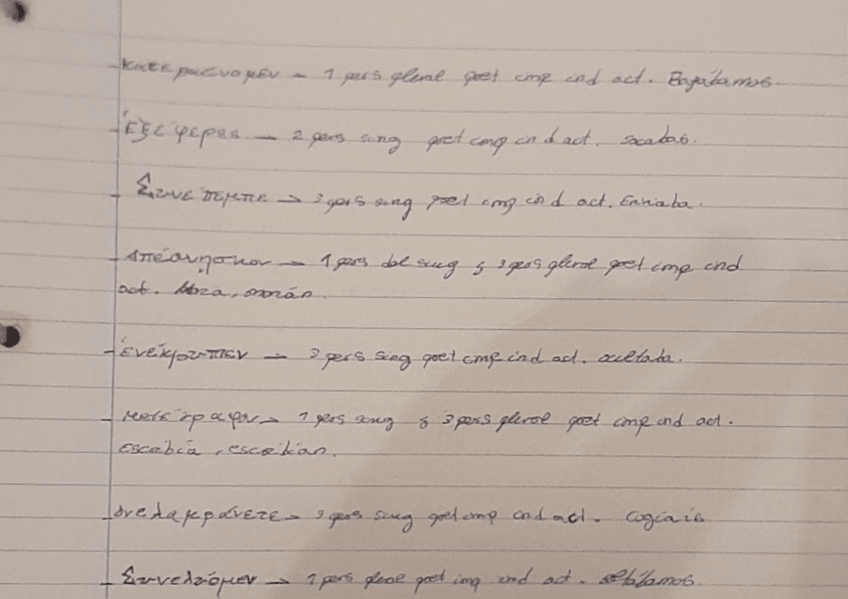 - κατεβαίνομεν – 1 pers plural pret imp ind act. Bajábamos.
- Ἐξέφερες – 2 pers sing pret imp ind act. sacabas.
- Συνέπεμπε → 3 pers sing pret imp ind act. Enviaba.
- Ἀπέθνησκον – 1 pers del sing y 3 pers plural pret imp ind
act. Moría, morían.
- ἐνέκρυπτεν – 3 pers sing pret imp ind act. ocultaba.
1 pers sing y 3 pers plural pret imp ind act.
escribía, escribían.
pers sing pret imp ind act. cogíais
1 pers plural pret imp ind act.